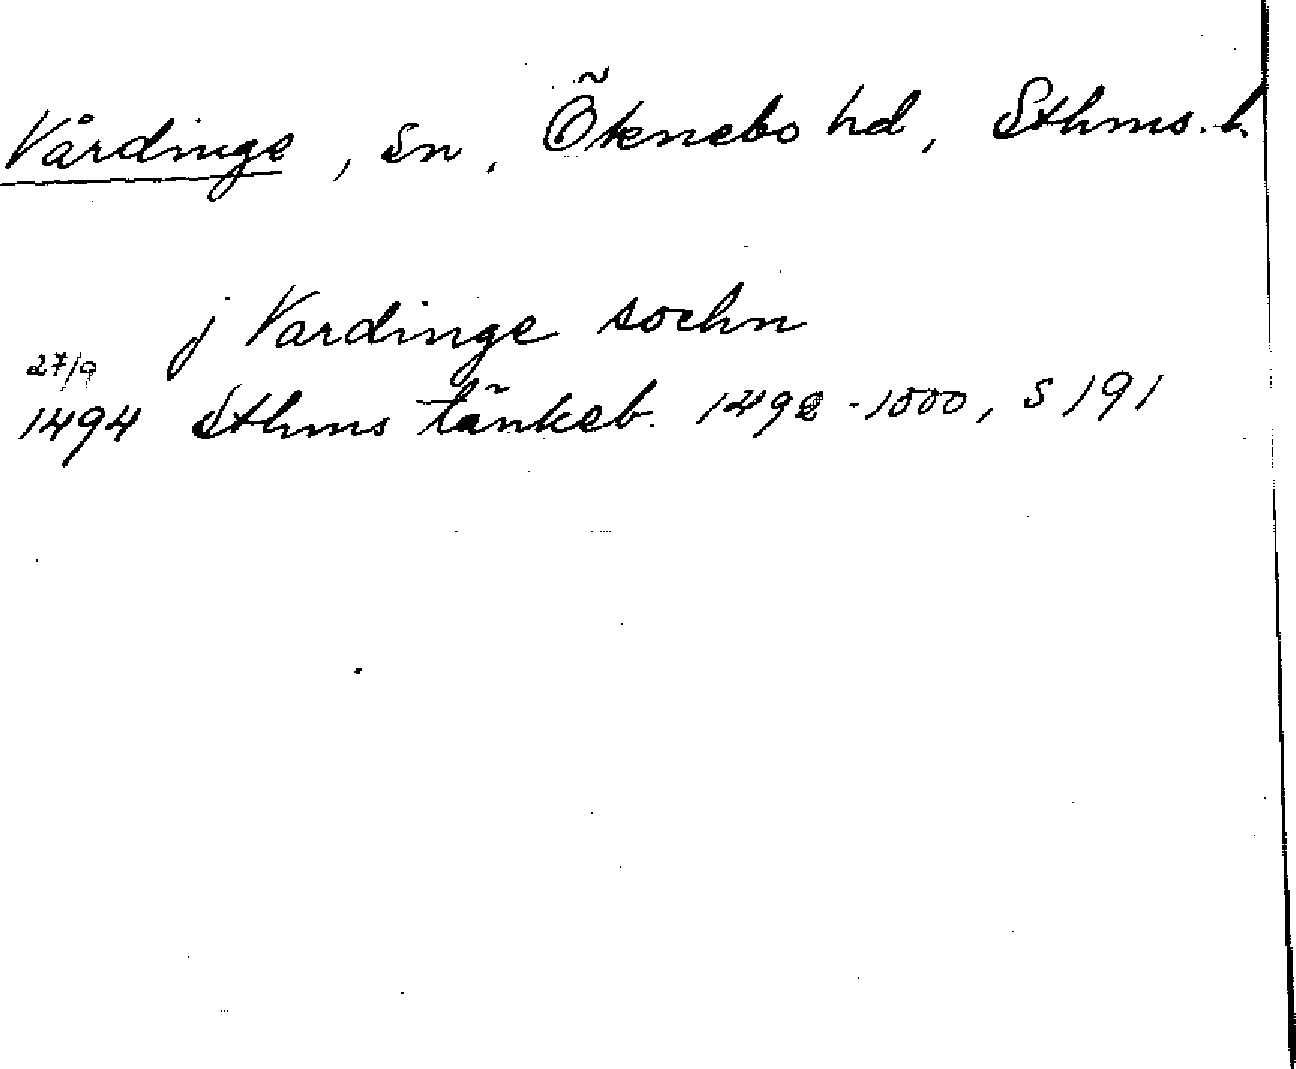 Vårdinge, Sn, Öknebo hd, Sthms. l.
j Vardinge sochn
27/9
1494 Sthms tänkeb. 1492-1500, s 191